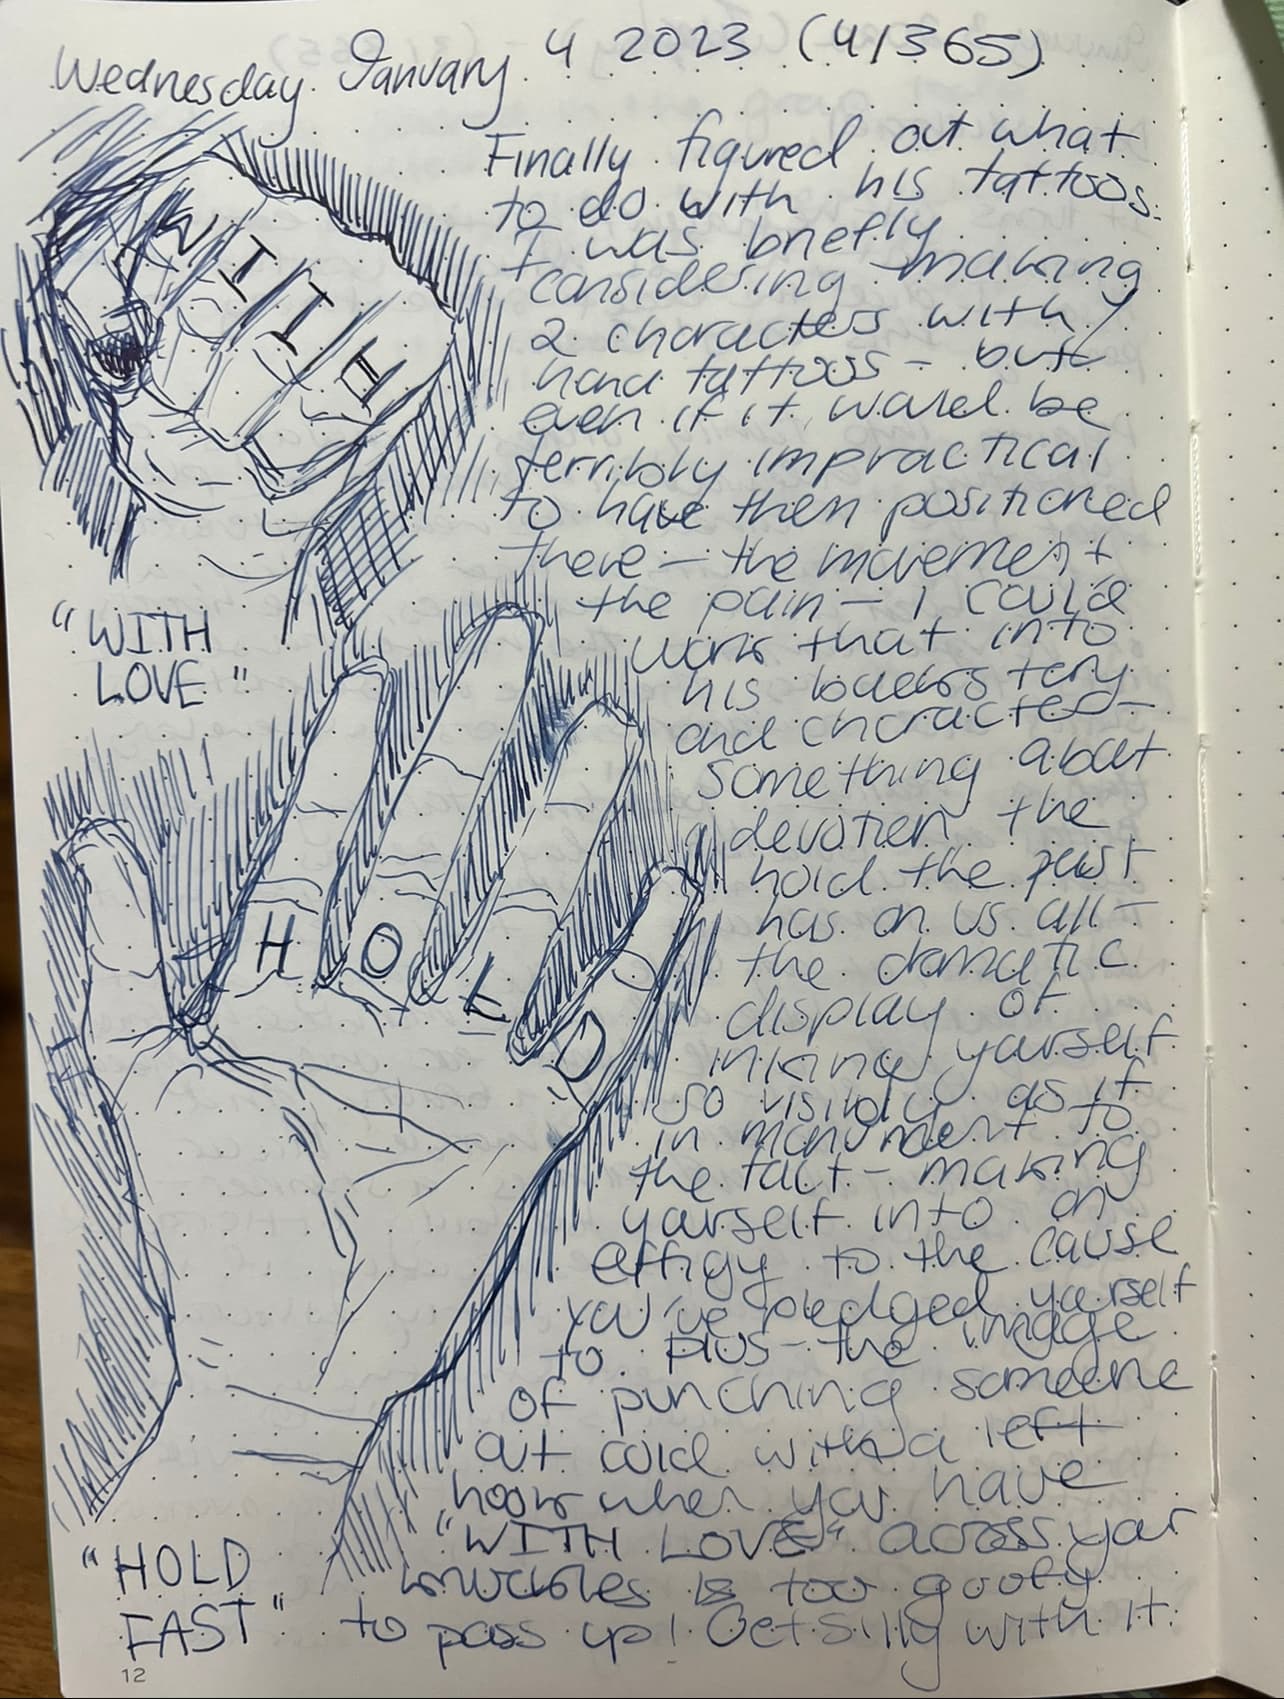 Wednesday January 4 2023 (4/365)
Finally figured out what
to do with his tattoos.
I was briefly
considering making
2 characters with
hand tattoos - but
even if it would be
terribly impractical
to have them positioned
there - the movement
the pain - I could
work that into
his backstory
and character -
Something about
devotion the
hold the past
has on us all -
the dramatic
display of
inking yourself
so visibly as if
in monument to
the fact - making
yourself into an
effigy to the cause
you've pledged yourself
to plus - the image
of punching someone
out cold with a left
hook when you have
"WITH LOVE" across your
knuckles is too goofy
to pass up! Get silly with it.
W I T H
"WITH
LOVE"
H O L D
"HOLD
FAST"
12